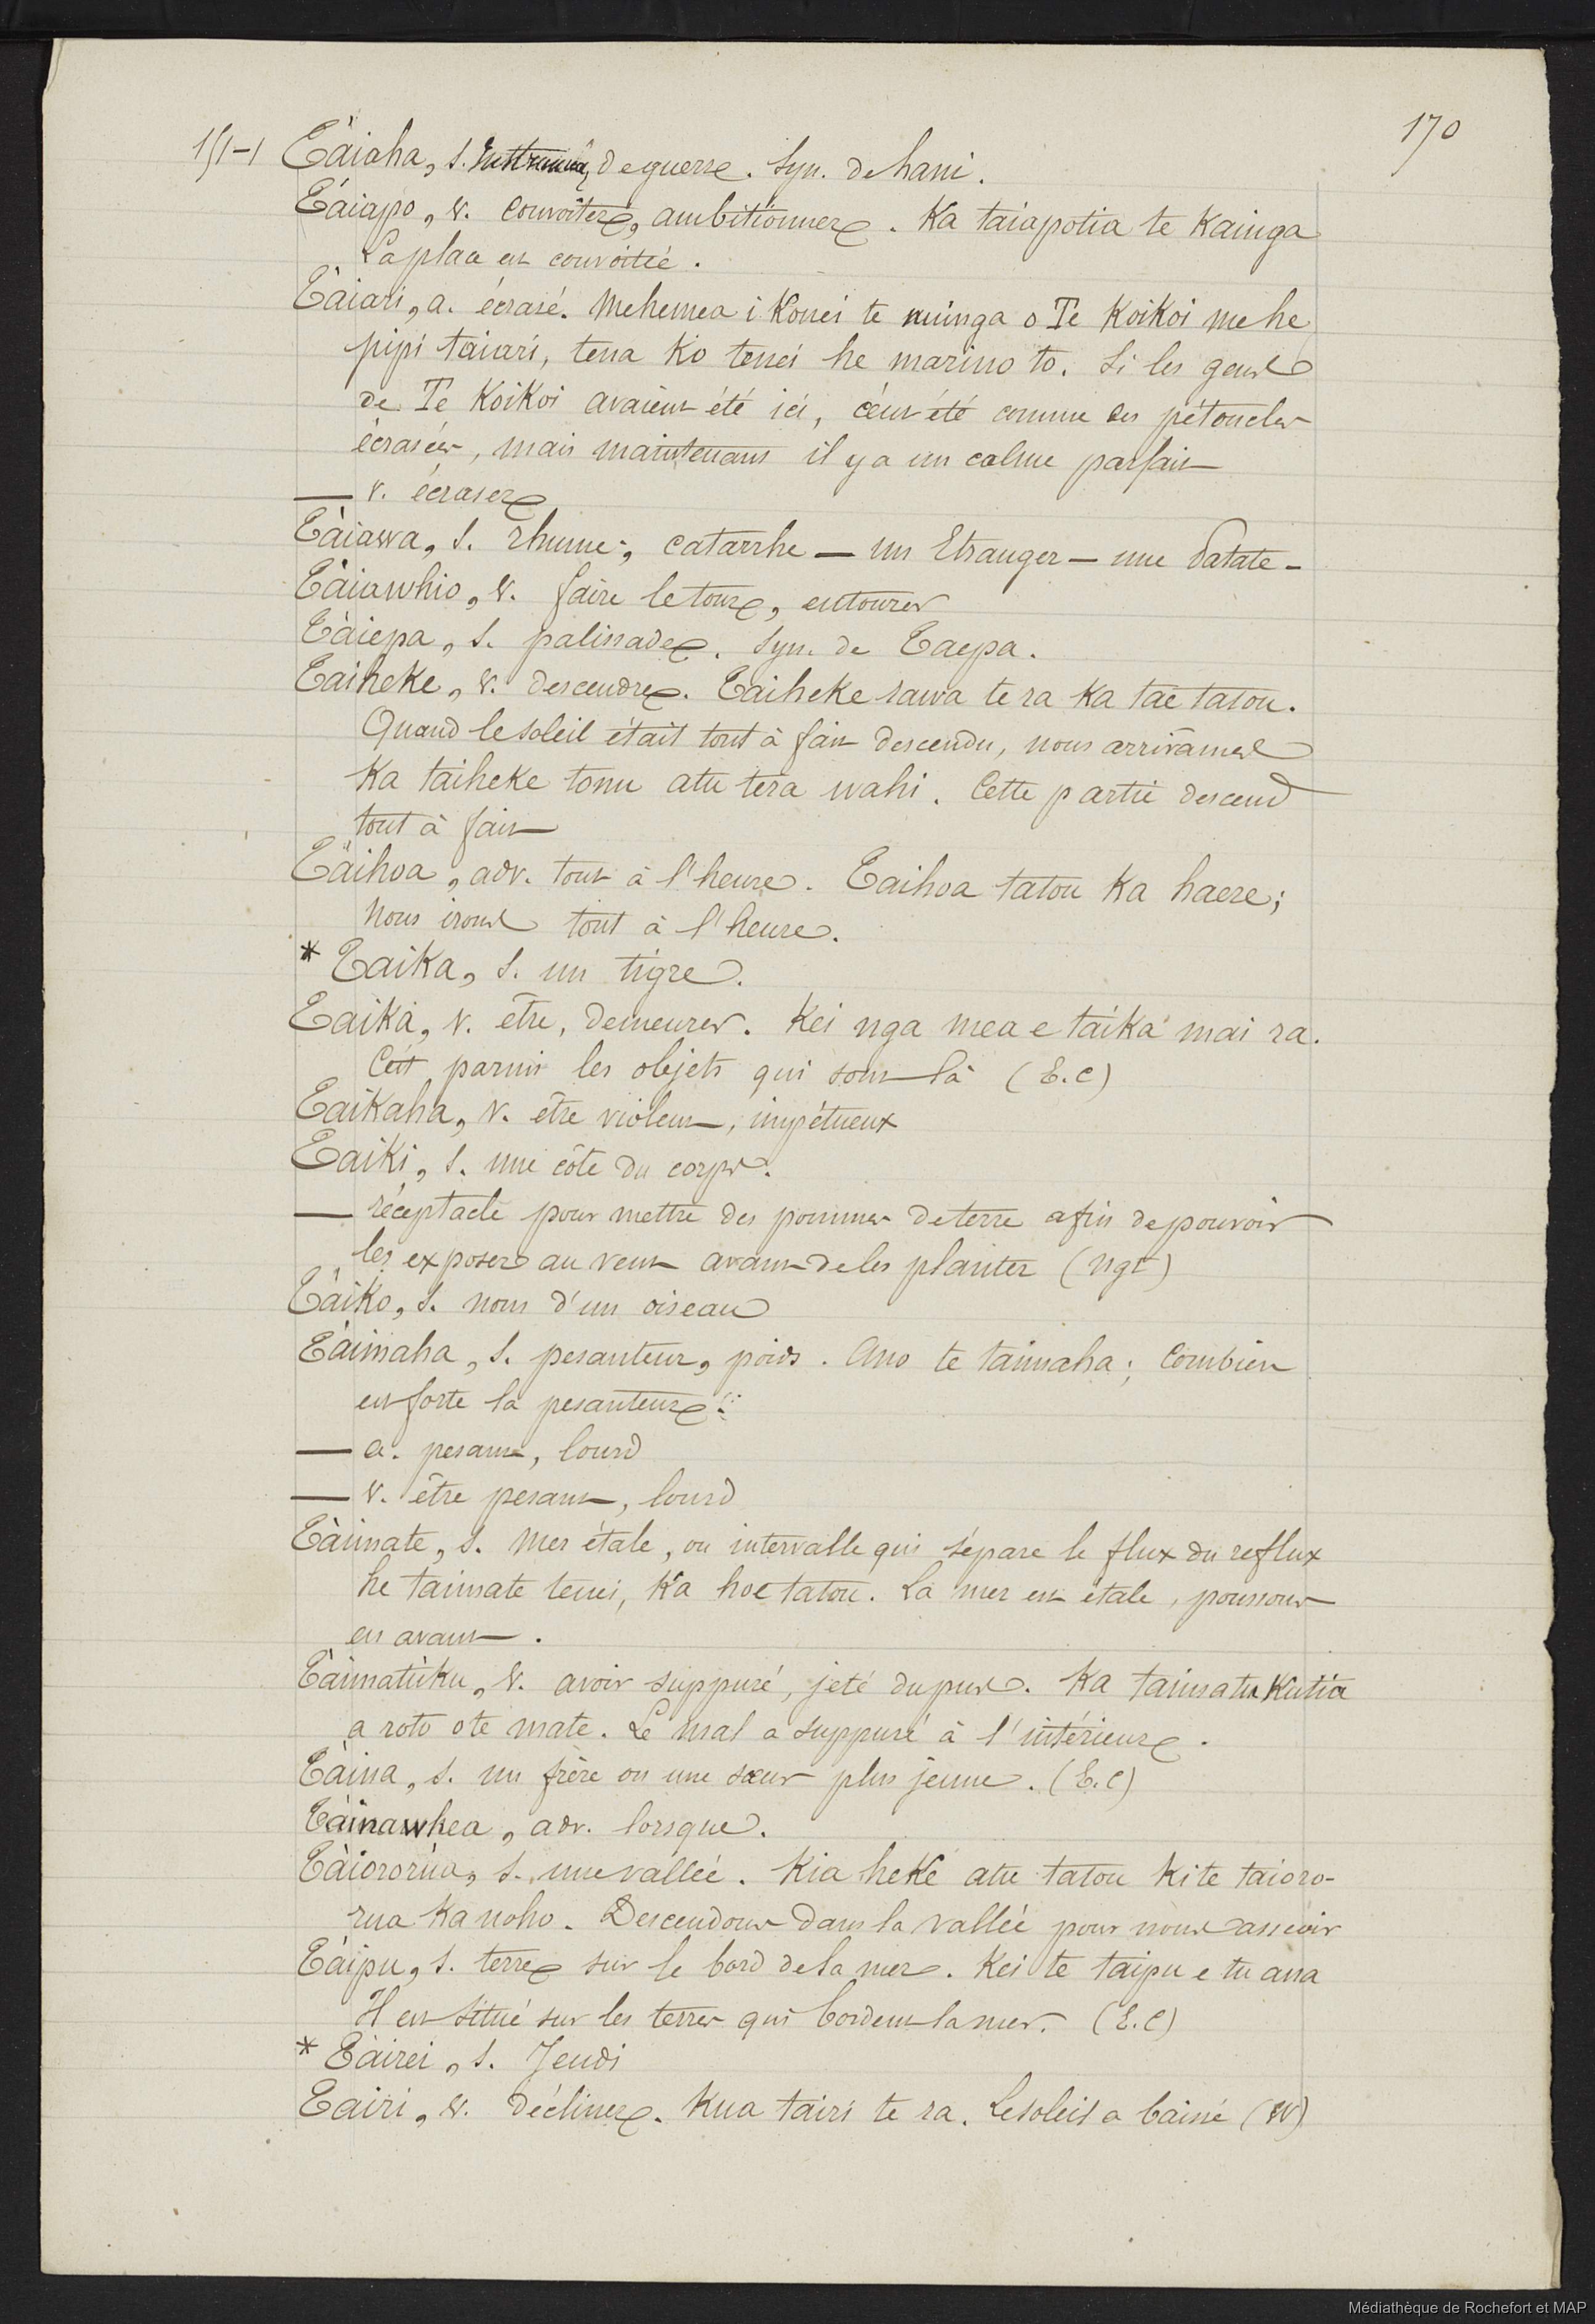 170
151-1 Tàiaha, s. Instrument de guerre. Syn. de hani.
Táiapo, v. convoiter, ambitionner. Ka taiapotia te kainga
La place est convoitée.
Tàiari, a. écrasé. Mehemea i konei te nuinga o Te Koikoi me he
pipi taiari, tena ko tenei he marino to. Si les gens
de Te Koikoi avaient été ici, c'eut été comme des pétoncles
écrasées, mais maintenant il y a un calme parfait
— v. écraser
Tàiawa, s. rhume, catarrhe — un Etranger — une Patate -
Tàiawhio, v. faire le tour, entourer
Tàiepa, s. palissade. Syn. de Taepa.
Taiheke, v. descendre. Taiheke rawa te ra ka tae tatou.
Quand le soleil était tout à fait descendu, nous arrivâmes
Ka taiheke tonu atu tera wahi. Cette partie descend
tout à fait
Tàihoa, adv. tout à l'heure. Taihoa tatou ka haere;
Nous irons tout à l'heure.
* Taika, s. un tigre.
Taikà, v. être, demeurer. Kei nga mea e taika mai ra.
C'est parmi les objets qui sont là (E.C)
Taikaha, v. être violent, impétueux
Taiki, s. une côte du corps.
— réceptacle pour mettre des pommes de terre afin de pouvoir
les exposer au vent avant de les planter (ngt)
Tàiko, s. nom d'un oiseau
Tàimaha, s. pesanteur, poids. Ano te taimaha; Combien
est forte la pesanteur!
— a. pesant, lourd
— v. être pesant, lourd
Tàimate, s. Mer étale, ou intervalle qui sépare le flux du reflux
he taimate tenei, ka hoe tatou. La mer est étale, poussons
en avant.
Tàimatùku, v. avoir suppuré, jeté du pus. Ka taimatukutia
a roto o te mate. Le mal a suppuré à l'intérieur.
Tàina, s. un frère ou une sœur plus jeune. (E.C)
Tàinawhea, adv. lorsque.
Tàiororùa, s. une vallée. Kia heke atu tatou ki te taioro-
rua ka noho. Descendons dans la vallée pour nous asseoir
Tàipu, s. terre sur le bord de la mer. Kei te taipu e tu ana
Il est situé sur les terres qui bordent la mer. (E.C)
* Tàirei, s. Jeudi
Tairi, v. décliner. Kua tairi te ra. Le soleil a baissé (W)
Médiathèque de Rochefort et MAP